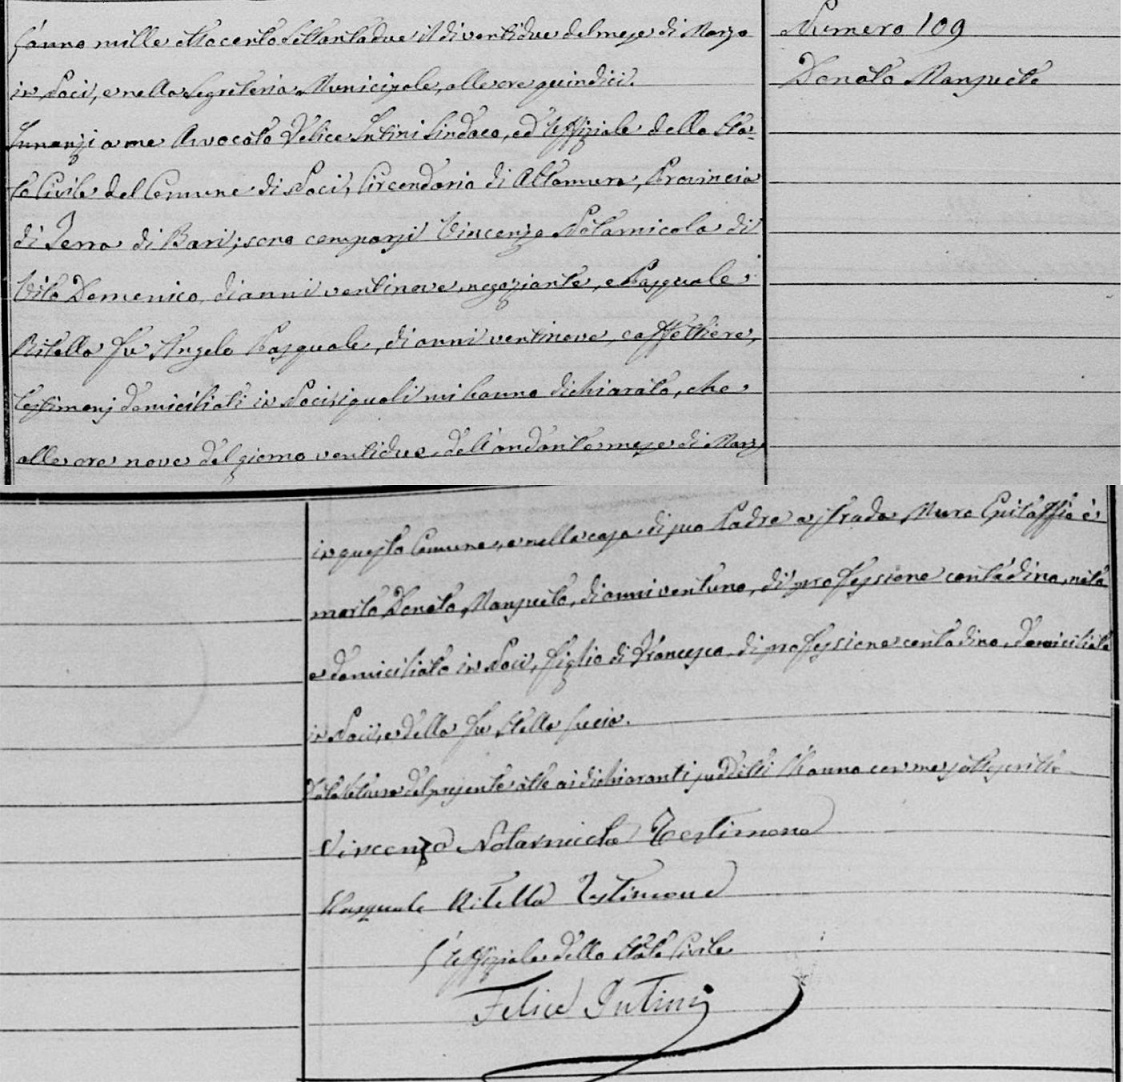 L'anno mille ottocento settantadue il dì ventidue del mese di Marzo
in Noci, e nella Segreteria Municipale, alle ore quindici.
Innanzi a me Avvocato Felice Intini Sindaco, ed Uffiziale dello Sta-
to Civile del Comune di Noci, Circondario di Altamura, Provincia
di Terra di Bari; sono comparsi Vincenzo Notarnicola di
Vito Domenico, di anni ventinove, negoziante, e Pasquale
Ritella fu Angelo Pasquale, di anni ventinove, caffettiere,
testimonj domiciliati in Noci; i quali mi hanno dichiarato, che
alle ore nove del giorno ventidue dell'andante mese di Marzo
Numero 109
Donato Mansueto
in questo Comune, e nella casa di suo Padre a strada Muro Epitaffio è
morto Donato Mansueto, di anni ventuno, di professione contadino, nato
e domiciliato in Noci, figlio di Francesco, di professione contadino, domiciliato
in Noci, e della fu Stella
Data lettura del presente atto ai dichiaranti suddetti l'hanno con me sottoscritto
Vincenzo Notarnicola Testimone
Pasquale Ritella Testimone
L'Uffiziale dello Stato Civile
Felice Intini